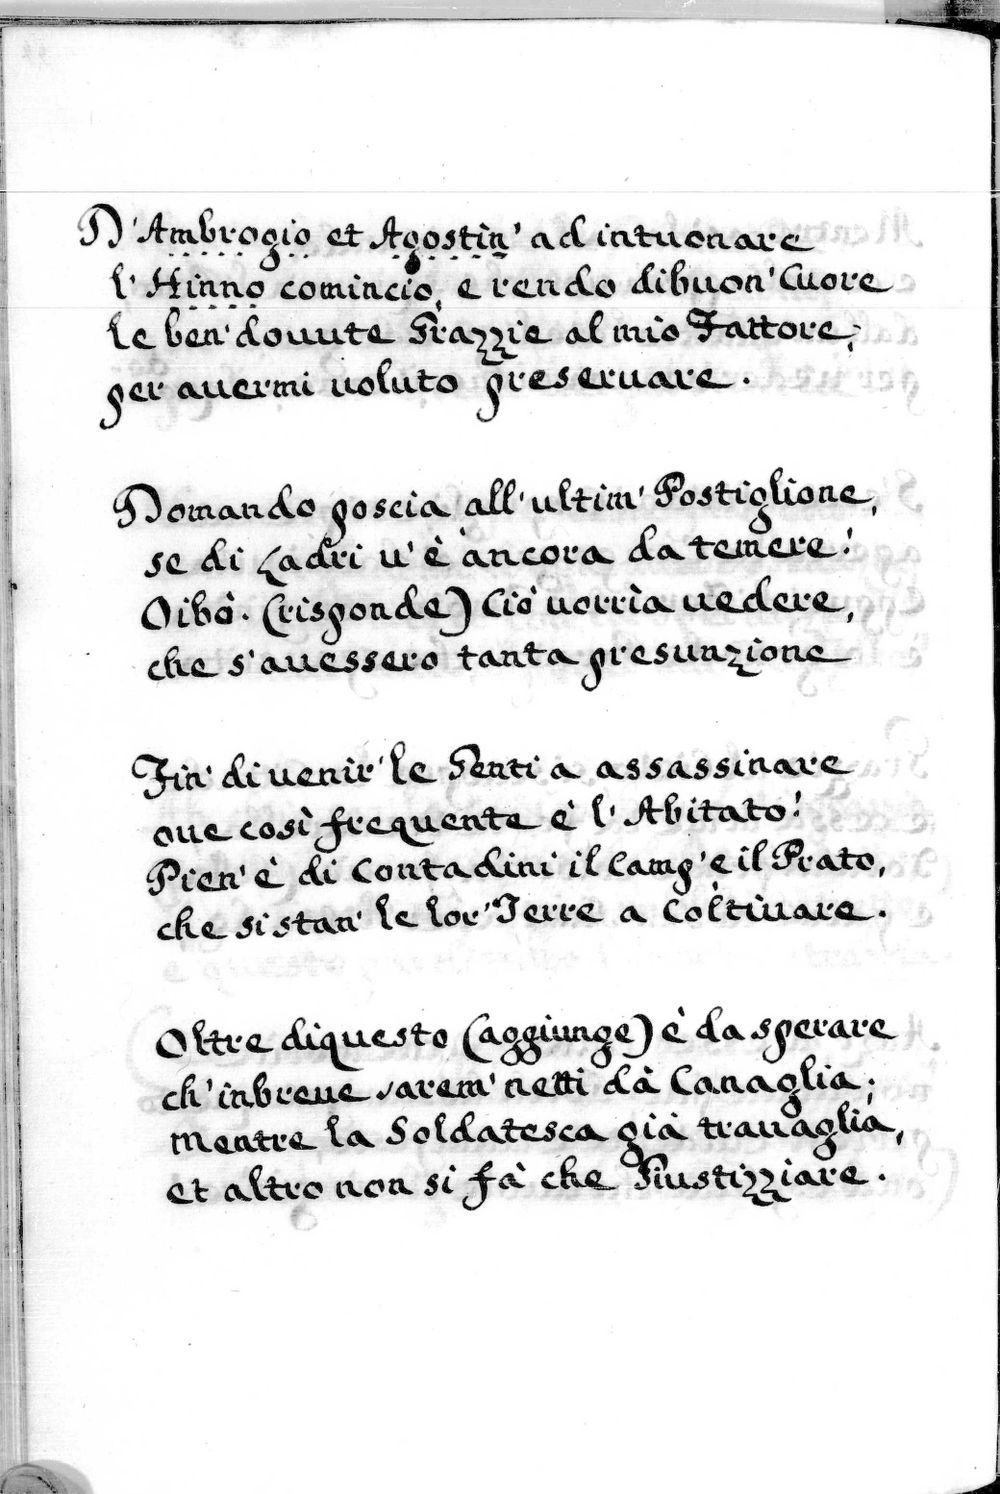 D'Ambrogio et Agostin' ad intuonare
l'Hinno comincio, e rendo dibuon' Cuore
le ben' douute Grazzie al mio Fattore,
per auermi uoluto preseruare.
Domando poscia all'ultim' Postiglione,
se di Ladri u'è ancora da temere!
Oibò. (risponde) Ciò uorrìa uedere,
che s'auessero tanta presunzione
Fin' di uenir' le Genti a assassinare
oue così frequente è l'Abitato!
Pien' è di Contadini il Camp' e il Prato,
che si stan' le lor' Terre a Coltiuare.
Oltre diquesto (aggiunge) è da sperare
ch'inbreue sarem' netti dà Canaglia;
mentre la Soldatesca già trauaglia,
et altro non si fà che Giustizziare.